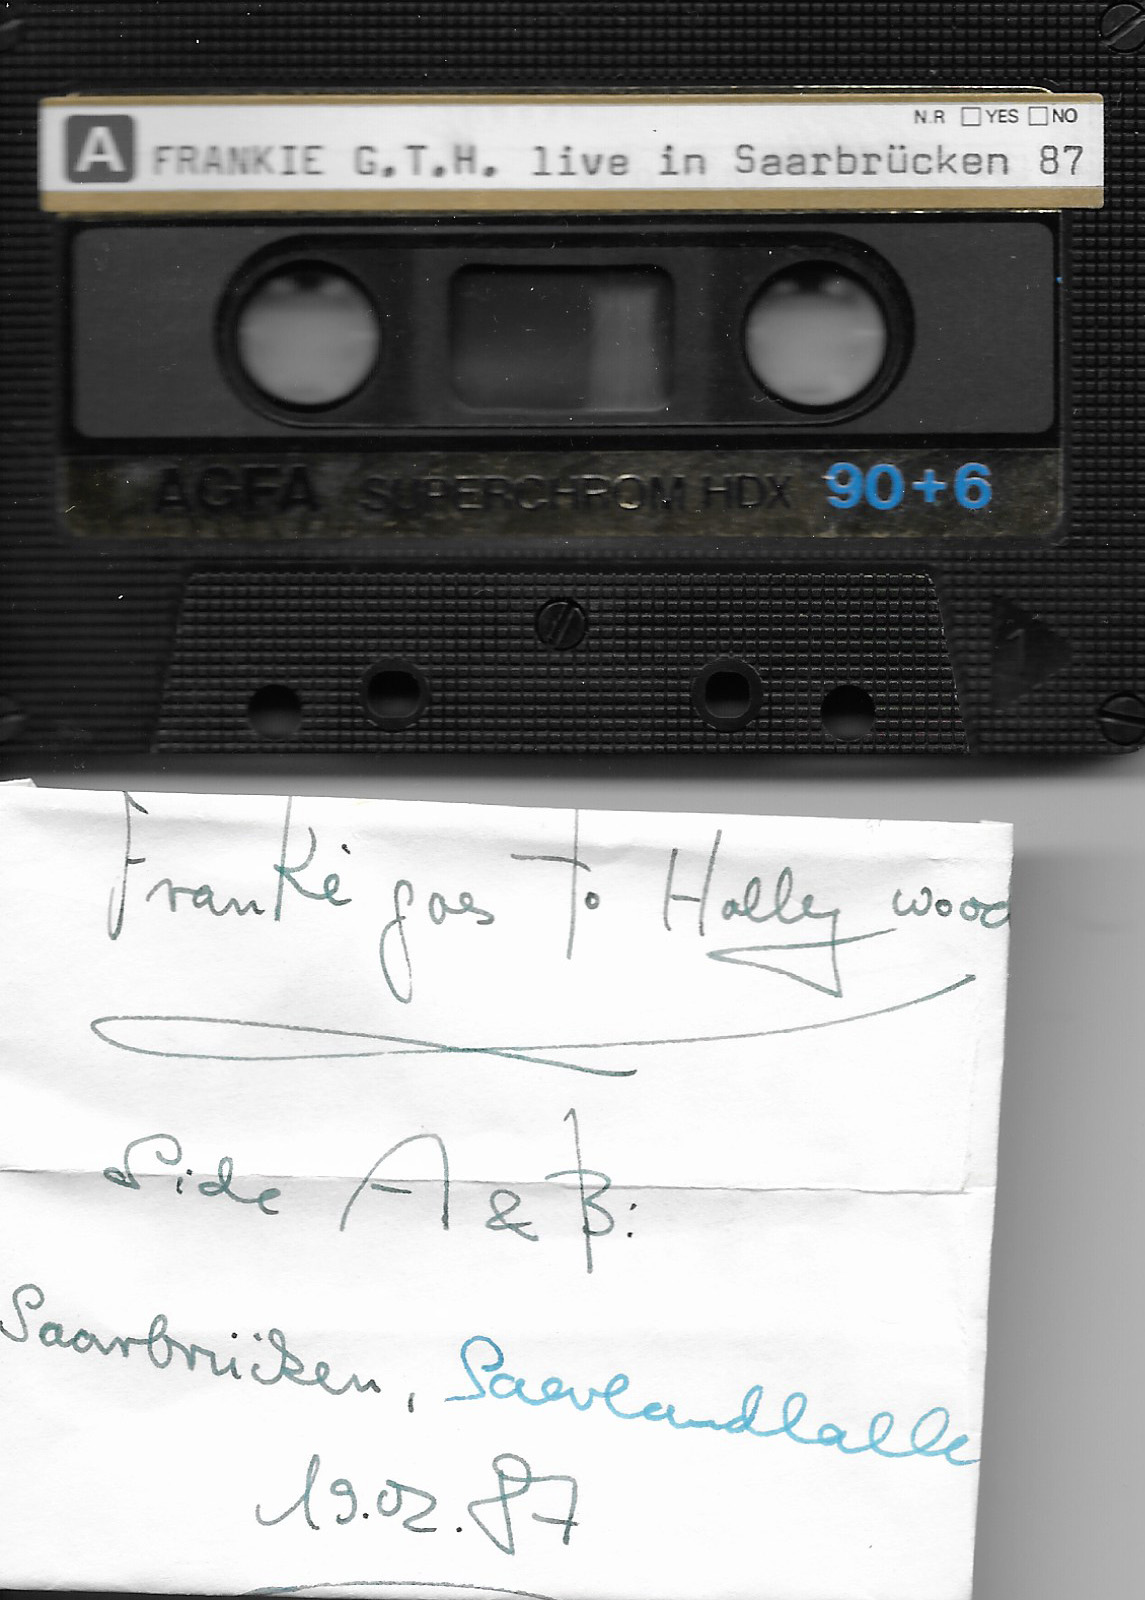 N.R □ YES □ NO
A FRANKIE G.T.H. live in Saarbrücken 87
AGFA SUPERCHROM HDX 90+6
Frankie goes To Hollywood
Side A & B:
Saarbrücken, Saarlandhalle
19.02.87